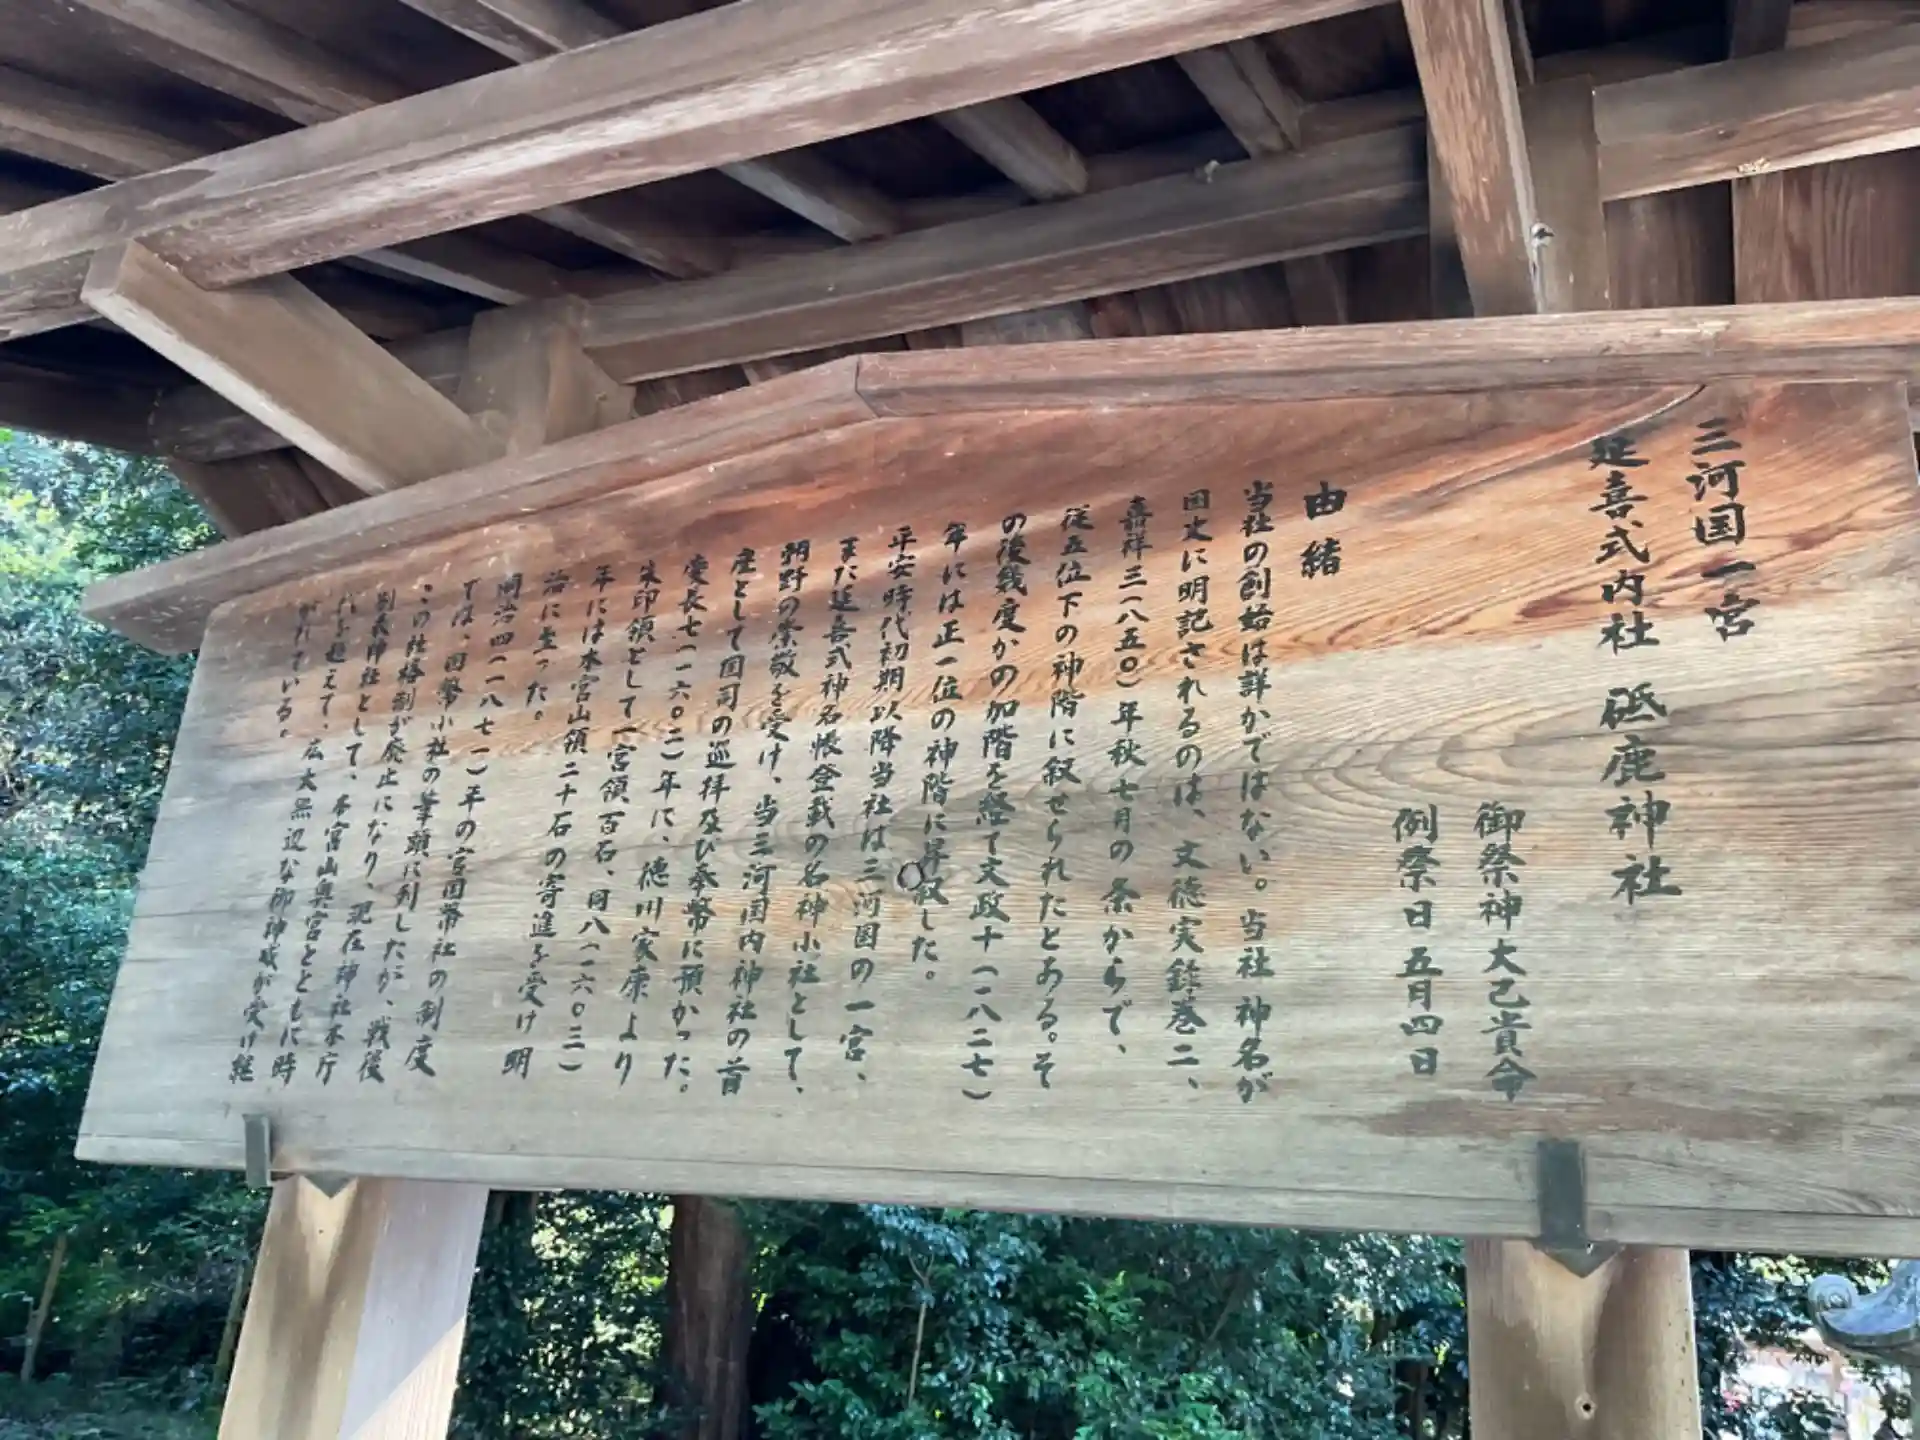 三河国一宮
延喜式内社 砥鹿神社
御祭神 大己貴命
例祭日 五月四日
由緒
当社の創始は詳かではない。当社神名が
国史に明記されるのは、文徳実録巻二、
嘉祥三(八五〇)年秋七月の条からで、
従五位下の神階に叙せられたとある。そ
の後幾度かの加階を経て文政十(一八二七)
年には正一位の神階に昇叙した。
平安時代初期以降当社は三河国の一宮、
また延喜式神名帳登載の名神小社として、
朝野の崇敬を受け、当三河国内神社の首
座として国司の巡拝及び奉幣に預かった。
慶長七(一六〇二)年に、徳川家康より
朱印領として一宮領百石、同八(一六〇三)
年には本宮山領二十石の寄進を受け明
治に至った。
明治四(一八七一)年の官国幣社の制度
では、国幣小社の筆頭に列したが、戦後
この社格制が廃止になり、現在神社本庁
別表神社として、本宮山奥宮とともに時
代を超えて、広大無辺な御神威が受け継
がれている。